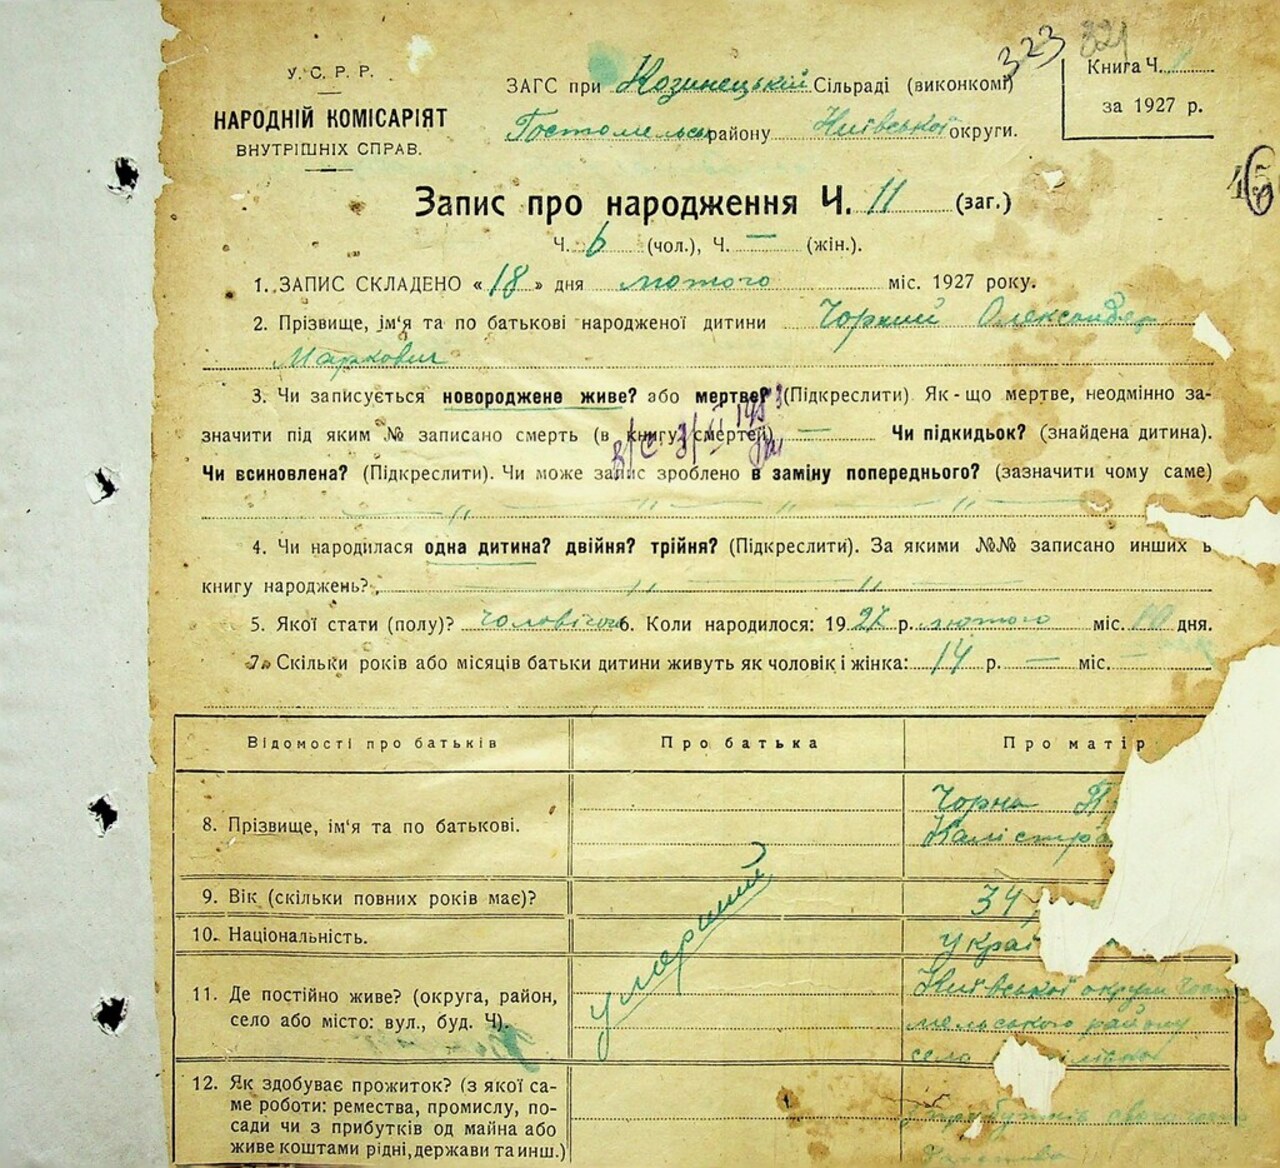 323 321
У. С. Р. Р.
НАРОДНІЙ КОМІСАРІЯТ
ВНУТРІШНІХ СПРАВ.
ЗАГС при Козинецькій Сільраді (виконкомі)
Гостомельськ району Київської округи.
Книга Ч. 1
за 1927 р.
Запис про народження Ч. 11 (заг.)
Ч. 6 (чол.), Ч. — (жін.).
1. ЗАПИС СКЛАДЕНО « 18 » дня лютого міс. 1927 року.
2. Прізвище, ім'я та по батькові народженої дитини Чорний Олександер
Маркович
3. Чи записується новороджене живе? або мертве? (Підкреслити) Як-що мертве, неодмінно за-
значити під яким № записано смерть (в книгу смертей) — Чи підкидьок? (знайдена дитина).
Чи всиновлена? (Підкреслити). Чи може запис зроблено в заміну попереднього? (зазначити чому саме)
— " — " — " — " —
4. Чи народилася одна дитина? двійня? трійня? (Підкреслити). За якими №№ записано инших в
книгу народжень? — " — " —
5. Якої стати (полу)? чоловічої 6. Коли народилося: 1927 р. лютого міс. 10 дня.
7. Скільки років або місяців батьки дитини живуть як чоловік і жінка: 14 р. — міс. —
Відомості про батьків Про батька Про матір
8. Прізвище, ім'я та по батькові. Чорна П
Калістра
9. Вік (скільки повних років має)? 34
10. Національність. Украї
умерший
11. Де постійно живе? (округа, район,
село або місто: вул., буд. Ч). Київської округи Госто
мельського району
село
12. Як здобуває прожиток? (з якої са-
ме роботи: ремества, промислу, по-
сади чи з прибутків од майна або
живе коштами рідні, держави та инш.)